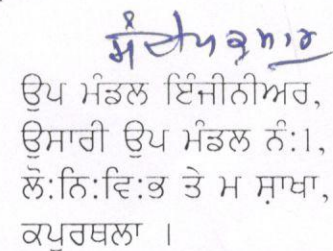 ਸੰਦੀਪ ਕੁਮਾਰ
ਉਪ ਮੰਡਲ ਇੰਜੀਨੀਅਰ,
ਉਸਾਰੀ ਉਪ ਮੰਡਲ ਨੰ:1,
ਲੋ:ਨਿ:ਵਿ:ਭ ਤੇ ਮ ਸ਼ਾਖਾ,
ਕਪੂਰਥਲਾ ।